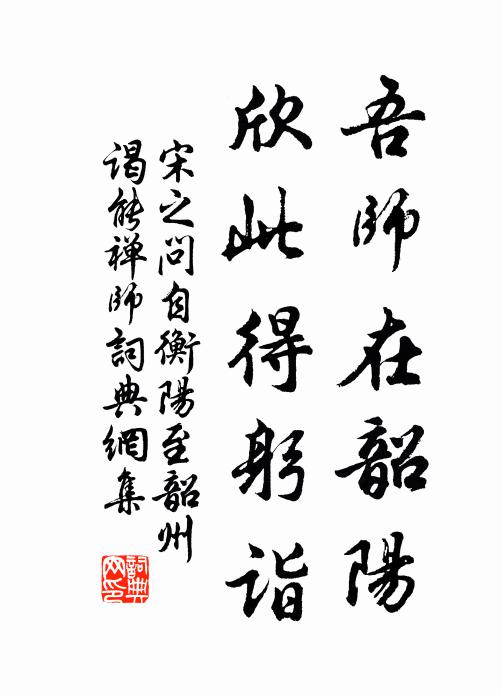 吾師在韶陽
欣此得躬詣
宋之问自衡陽至韶州
谒能禅師詞典網集
詞典
网印